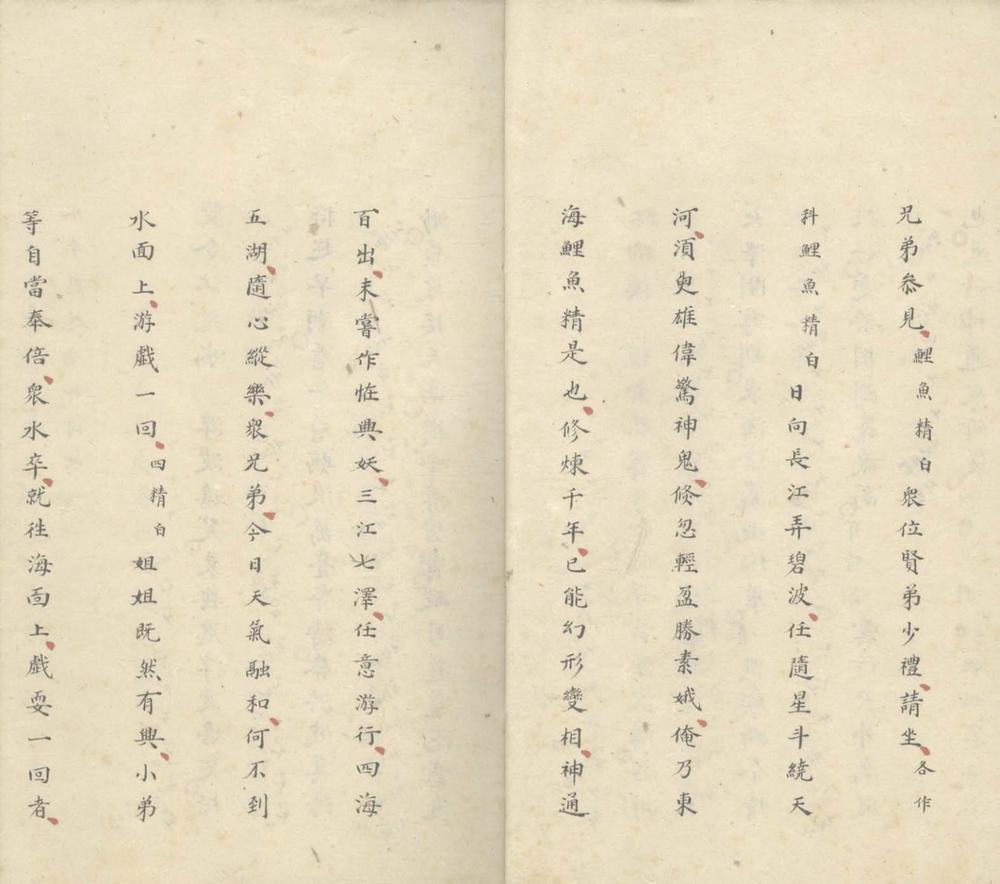 兄弟叅見鯉魚精白衆位賢弟少禮請坐各作
科鯉魚精白日向長江弄碧波任隨星斗繞天
河湏臾雄偉驚神鬼倐忽輕盈勝素娥俺乃東
海鯉魚精是也修煉千年已能幻形變相神通
百出末嘗作恠興妖三江七澤任意游行四海
五湖隨心縱樂衆兄弟今日天氣融和何不到
水面上游戲一回四精白姐姐既然有興小弟
等自當奉倍衆水卒就徃海面上戲耍一回者